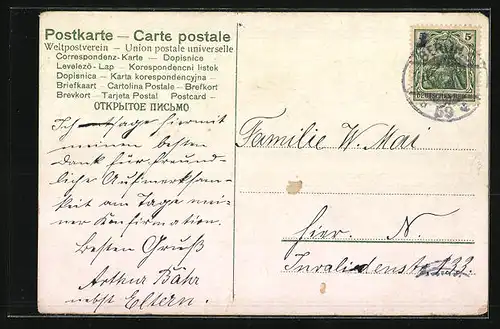 Postkarte — Carte postale
Weltpostverein — Union postale universelle
Correspondenz-Karte — Dopisnice
Levelező-Lap — Korespondencni listek
Dopisnica — Karta korespondencyjna —
Briefkaart — Cartolina Postale — Brefkort
Brevkort — Tarjeta Postal — Postcard —
ОТКРЫТОЕ ПИСЬМО
Ich sage hiermit
meinen besten
Dank für freund-
liche Aufmerksam-
keit am Tage mei-
ner Konfirmation.
Besten Gruß
Arthur Bähr
nebst Eltern.
5
Familie W. Mai
Hier. N.
Invalidenstr. 133.